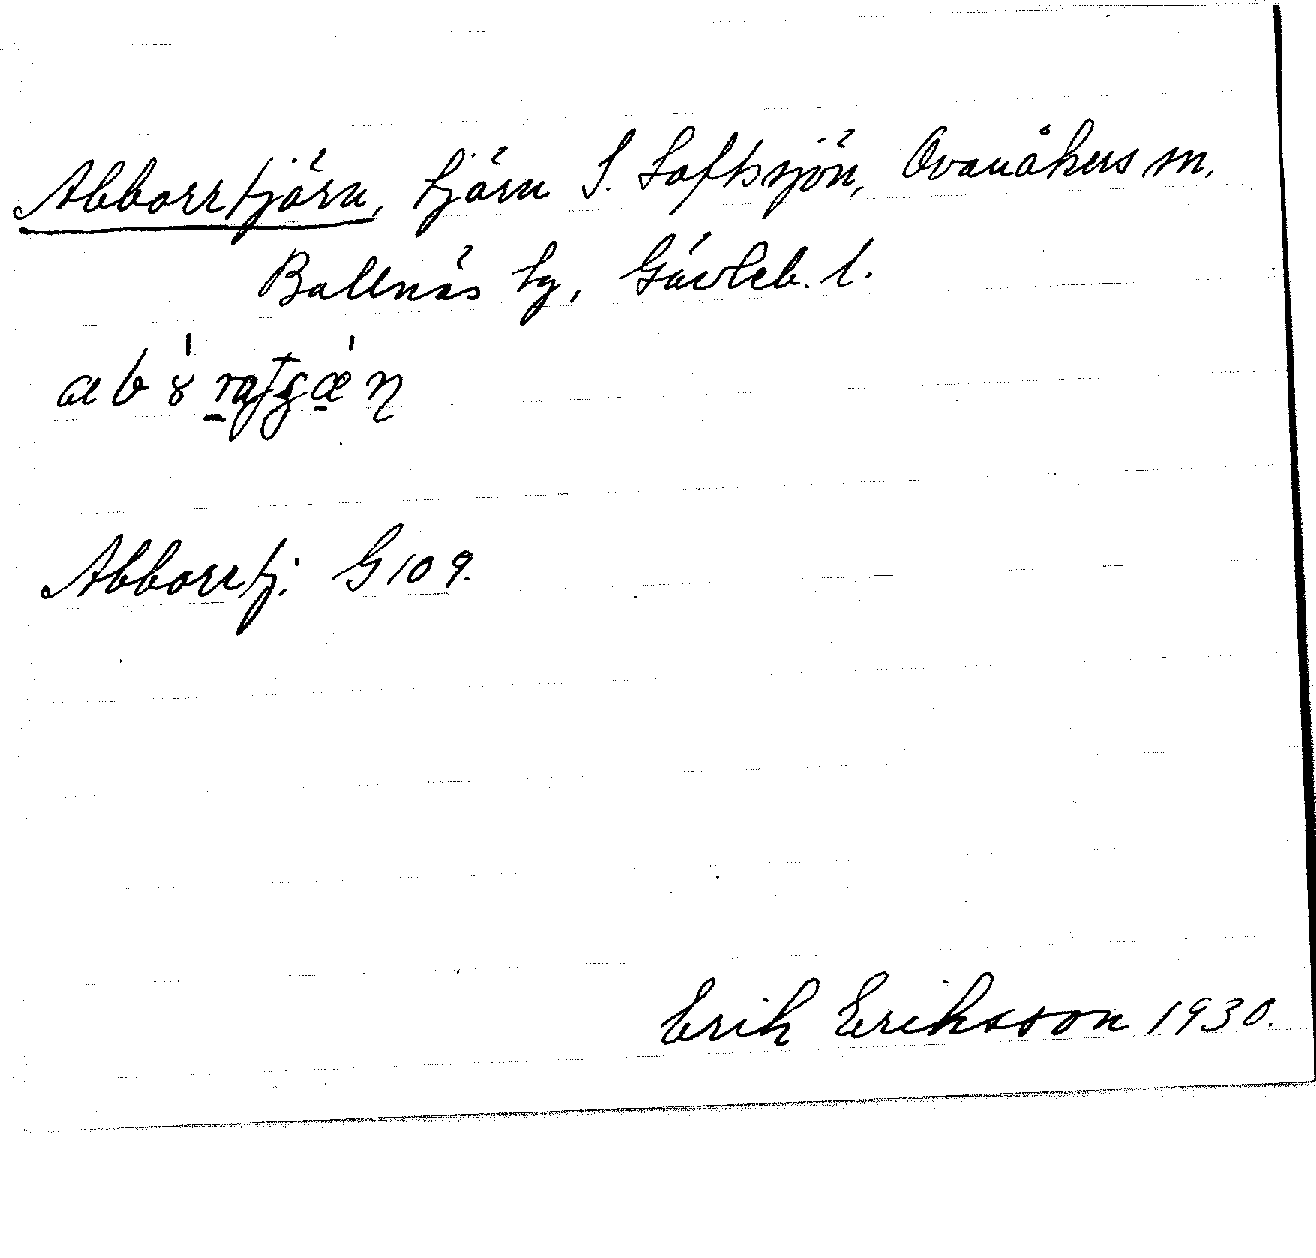 Abborrtjärn, tjärn S. Loftssjön, Ovanåkers sn,
Bollnäs tg, Gävleb. l.
Abborrtj. G 109.
Erik Eriksson 1930.